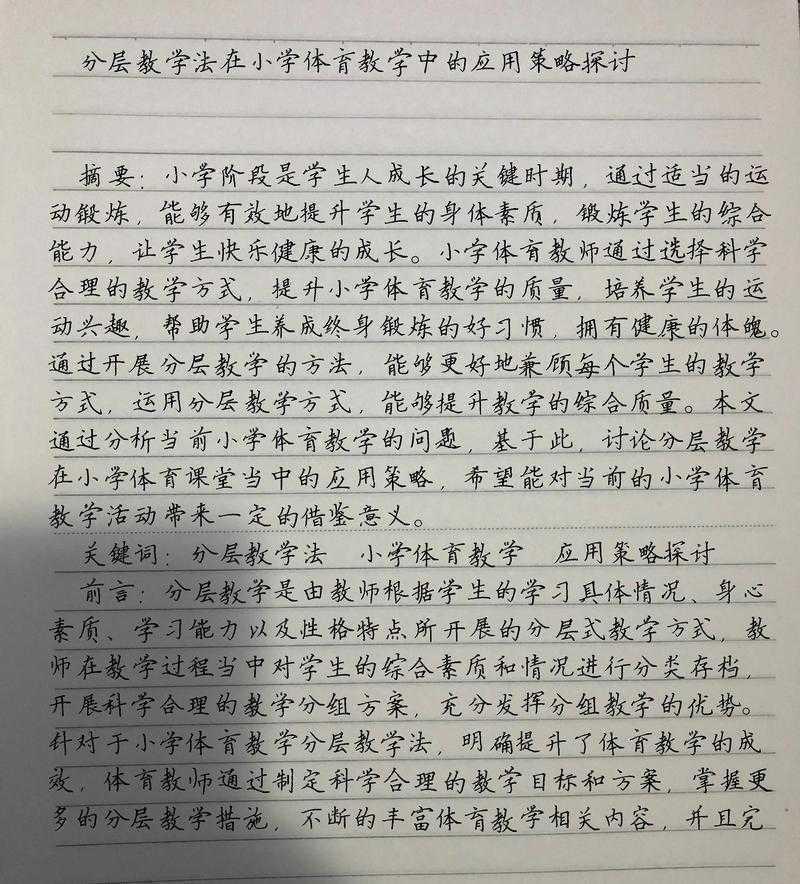 分层教学法在小学体育教学中的应用策略探讨
摘要：小学阶段是学生人成长的关键时期，通过适当的运
动锻炼，能够有效地提升学生的身体素质，锻炼学生的综合
能力，让学生快乐健康的成长。小学体育教师通过选择科学
合理的教学方式，提升小学体育教学的质量，培养学生的运
动兴趣，帮助学生养成终身锻炼的好习惯，拥有健康的体魄。
通过开展分层教学的方法，能够更好地兼顾每个学生的教学
方式，运用分层教学方式，能够提升教学的综合质量。本文
通过分析当前小学体育教学的问题，基于此，讨论分层教学
在小学体育课堂当中的应用策略，希望能对当前的小学体育
教学活动带来一定的借鉴意义。
关键词：分层教学法 小学体育教学 应用策略探讨
前言：分层教学是由教师根据学生的学习具体情况、身心
素质、学习能力以及性格特点所开展的分层式教学方式，教
师在教学过程当中对学生的综合素质和情况进行分类存档，
开展科学合理的教学分组方案，充分发挥分组教学的优势。
针对于小学体育教学分层教学法，明确提升了体育教学的成
效，体育教师通过制定科学合理的教学目标和方案，掌握更
多的分层教学措施，不断的丰富体育教学相关内容，并且完